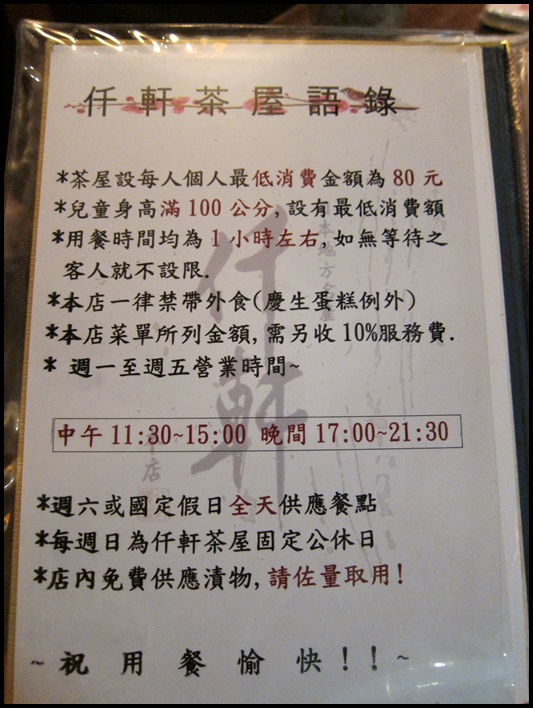 仟軒茶屋語錄
*茶屋設每人個人最低消費金額為 80 元
*兒童身高滿 100 公分, 設有最低消費額
*用餐時間均為 1 小時左右, 如無等待之
客人就不設限.
*本店一律禁帶外食(慶生蛋糕例外)
*本店菜單所列金額, 需另收 10%服務費.
* 週一至週五營業時間~
中午 11:30~15:00 晚間 17:00~21:30
*週六或國定假日全天供應餐點
*每週日為仟軒茶屋固定公休日
*店內免費供應漬物, 請佐量取用!
~祝用餐愉快!!~
仟軒